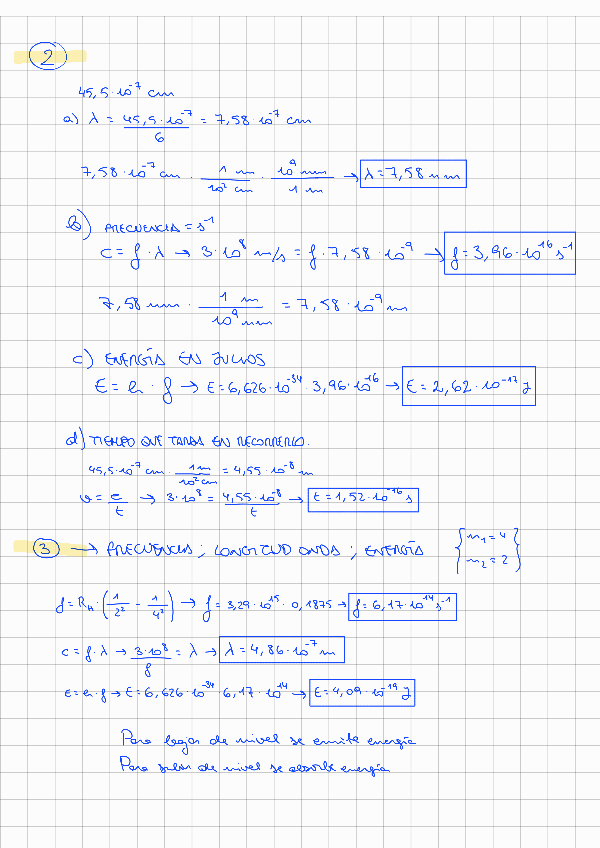 2
45,5·10⁻⁷ cm
a) λ = 45,5·10⁻⁷/6 = 7,58·10⁻⁷ cm
7,58·10⁻⁷ cm · 1 m/10² cm · 10⁹ nm/1 m → λ = 7,58 nm
b) FRECUENCIA = s⁻¹
c = f·λ → 3·10⁸ m/s = f·7,58·10⁻⁹ → f = 3,96·10¹⁶ s⁻¹
7,58 nm · 1 m/10⁹ nm = 7,58·10⁻⁹ m
c) ENERGÍA EN JULIOS
E = h · f → E = 6,626·10⁻³⁴ · 3,96·10¹⁶ → E = 2,62·10⁻¹⁷ J
d) TIEMPO QUE TARDA EN RECORRERLO.
45,5·10⁻⁷ cm · 1 m/10² cm = 4,55·10⁻⁸ m
v = e/t → 3·10⁸ = 4,55·10⁻⁸/t → t = 1,52·10⁻¹⁶ s
3 → FRECUENCIA ; LONGITUD ONDA ; ENERGÍA { n₁ = 4 n₂ = 2 }
f = R_H · (1/2² - 1/4²) → f = 3,29·10¹⁵ · 0,1875 → f = 6,17·10¹⁴ s⁻¹
c = f·λ → 3·10⁸/f = λ → λ = 4,86·10⁻⁷ m
E = h·f → E = 6,626·10⁻³⁴ · 6,17·10¹⁴ → E = 4,09·10⁻¹⁹ J
Para bajar de nivel se emite energía
Para subir de nivel se absorbe energía